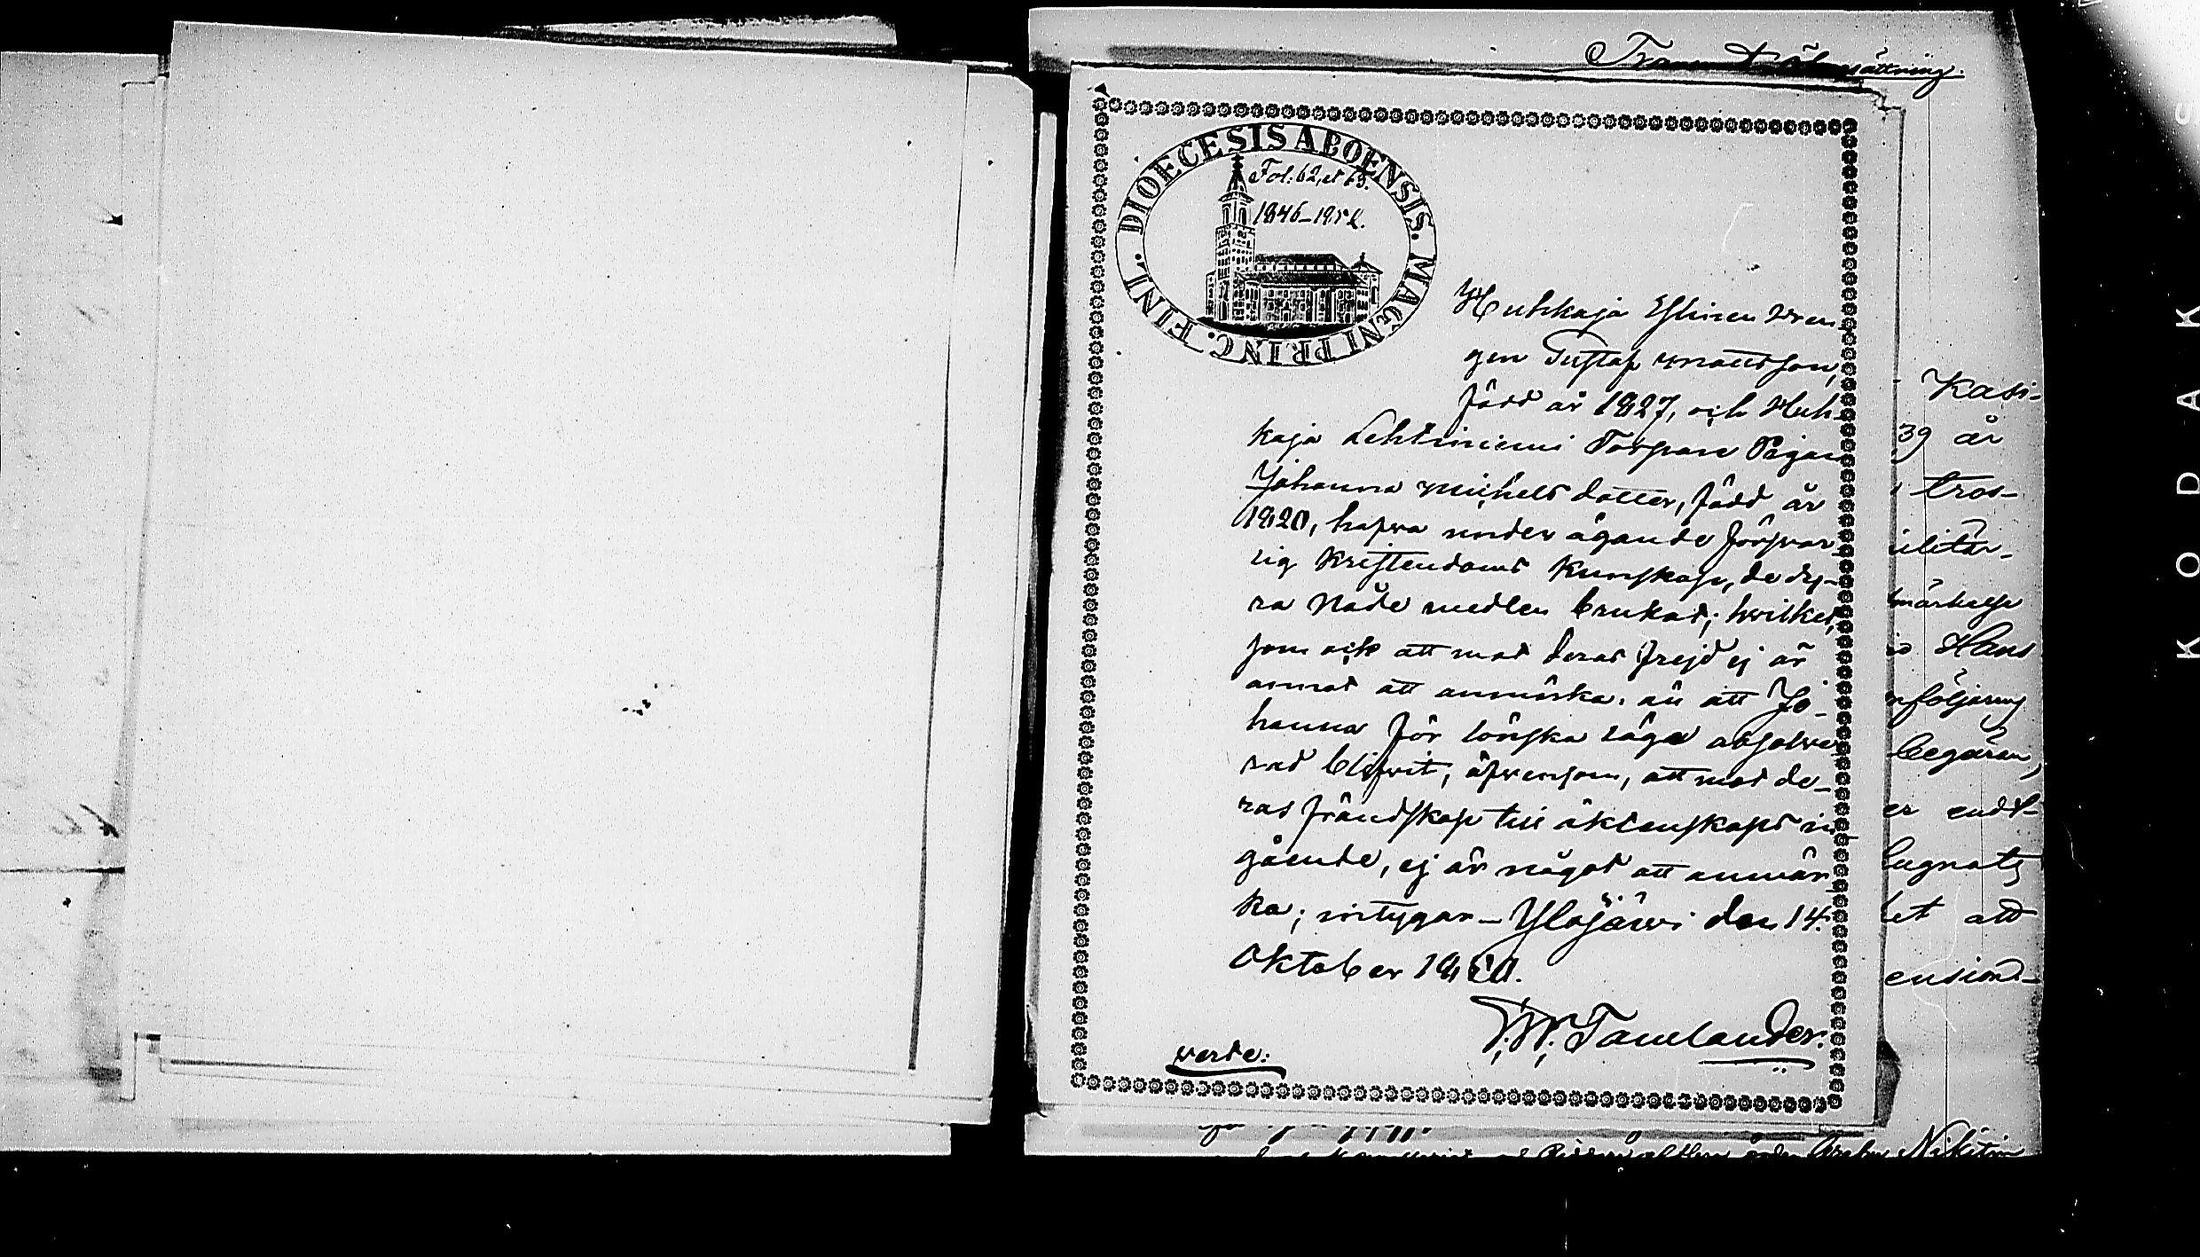 Trans Öfversättning.
DIOECESIS ABOENSIS. MAGNI PRINC. FINL.
Fol: 62, et 63.
1846-1852.
Huhkaja Eskinen Dren-
gen Gustaf Mattsson,
född år 1827, och Huh-
kaja Lehtiniemi Torpare Pigan
Johanna Michels dotter, född år
1820, hafva under ägande försvar-
lig Kristendoms Kunskap, de dy-
ra Nåde medlen brukat; hvilket,
som ock att mot deras frejd ej är
annat att anmärka, än att Jo-
hanna för lönska läge absolve-
rad blifvit, äfvensom, att mot de-
ras frändskap till äktenskaps in-
gående, ej är något att anmär-
ka; intygar - Ylöjärvi den 14.
Oktober 1850.
F. W. Tamelander.
verte:
Kasi-
39 år
tros-
ilitär-
märkelse
Hans
nföljning
begäran,
er endt-
lugnats
et att
ension-
Nikitin
KODAK S